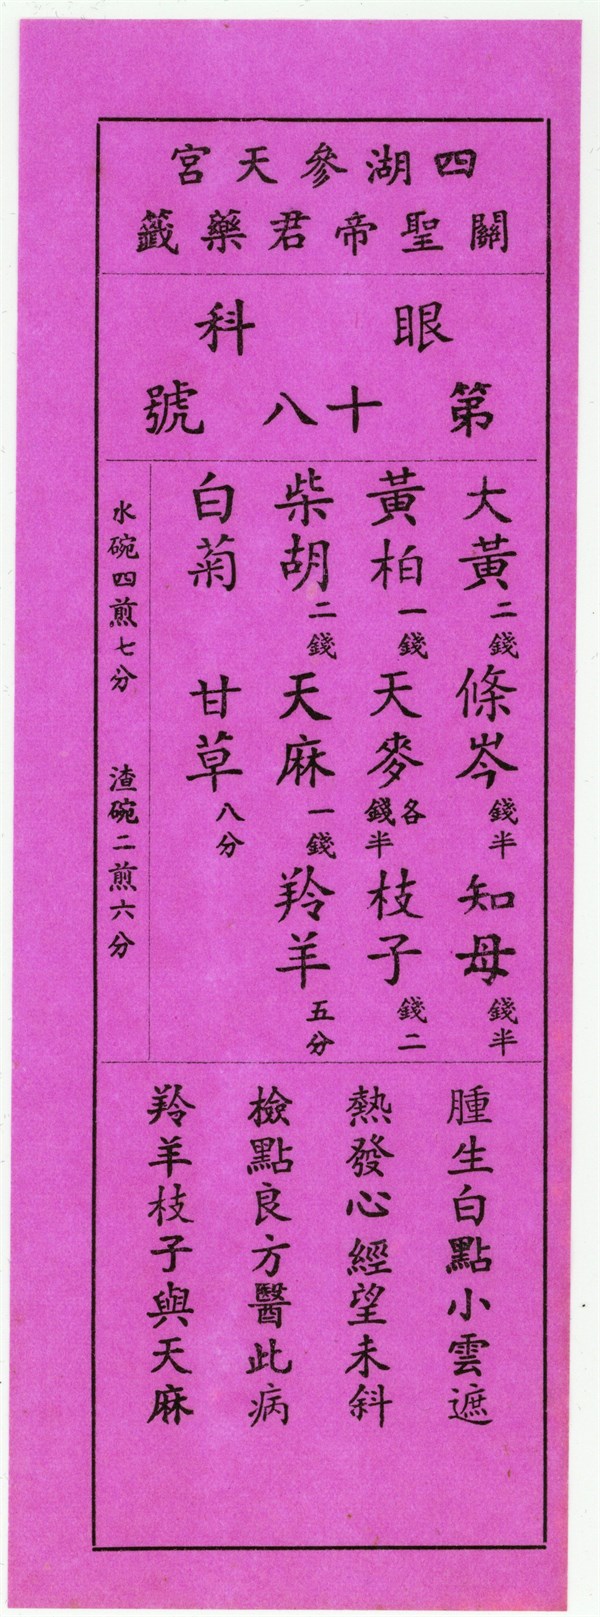 四湖參天宮
關聖帝君藥籤
眼科
第十八號
大黃二錢 條岑錢半 知母錢半
黃柏一錢 天麥各錢半 枝子錢二
柴胡二錢 天麻一錢 羚羊五分
白菊 甘草八分
水碗四煎七分 渣碗二煎六分
腫生白點小雲遮
熱發心經望未斜
檢點良方醫此病
羚羊枝子與天麻